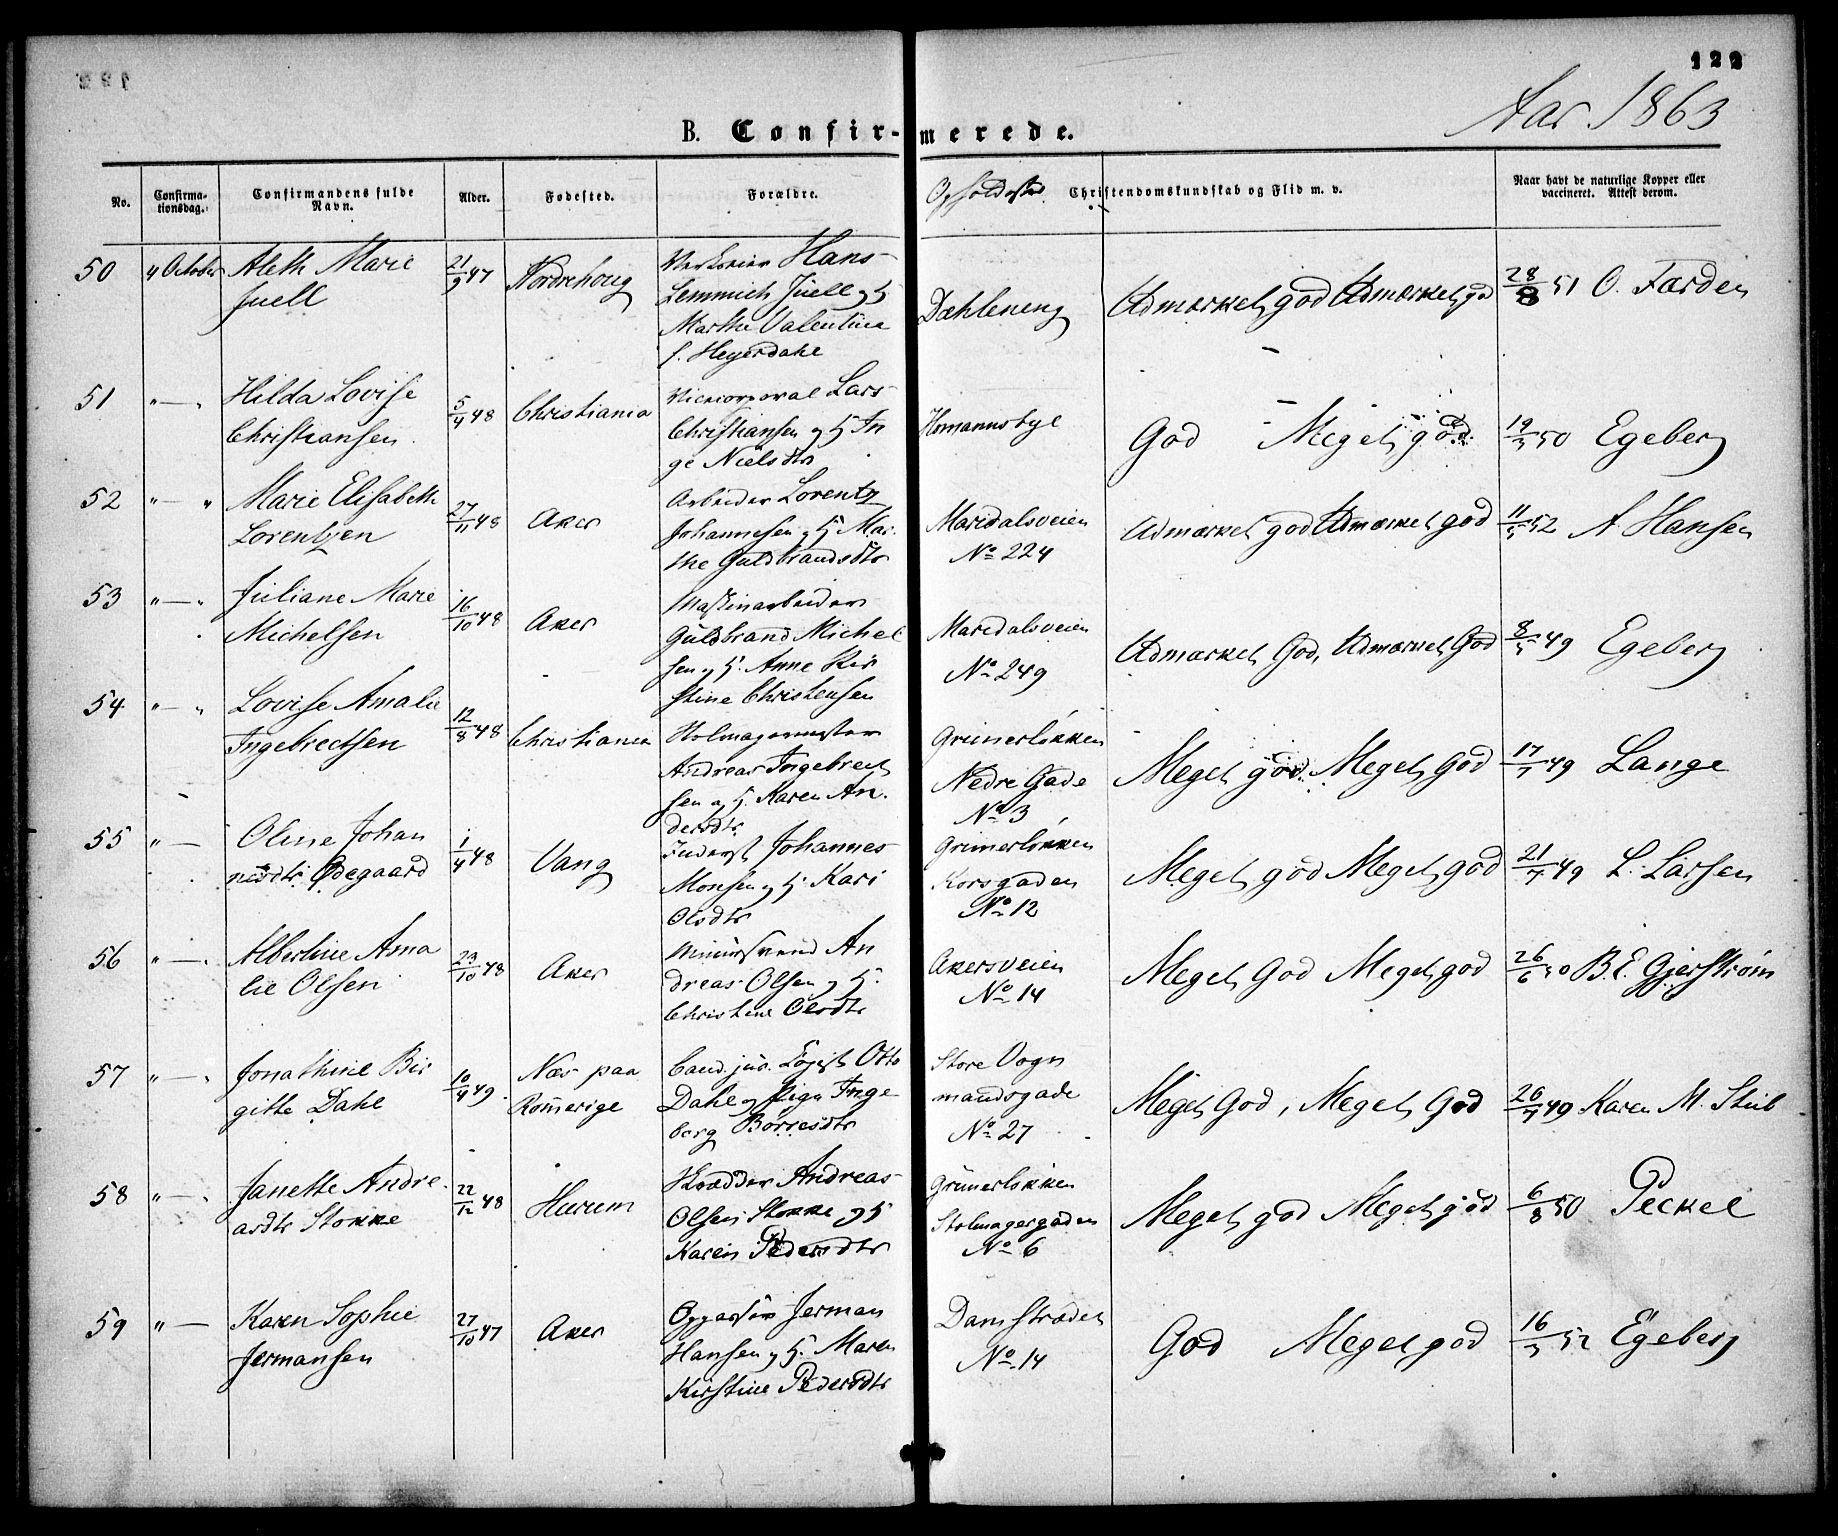 122
Aar 1863
B. Confir-merede.
No. Confirma-tionsdag. Confirmandens fulde Navn. Alder. Fødested. Forældre. Opholdssted Christendomskundskab og Flid m. v. Naar havt de naturlige Kopper eller vaccineret. Attest derom.
50 4 October Aleth Marie 21/9 47 Nordrehoug Hans
Juell Lemmich Juell og H
Marthe Valentine
f. Heyerdahl
Dæhleneng Udmærket god Udmærket god 28/8 51 O. Færden
51 "—" Hilda Lovise 5/4 48 Christiania Vicecorporal Lars
Christiansen Christiansen og H In
ge Nielsdtr
Homannsbye God Meget god 19/5 50 Egeberg
52 "—" Marie Elisabeth 27/11 48 Aker Arbeider Lorentz
Lorentzen Johannesen og H Mar
the Guldbrandsdtr
Maridalsveien
No 224
Udmærket god Udmærket god 11/5 52 A. Hansen
53 "—" Juliane Marie 16/10 48 Aker Maskinarbeider
Michelsen Guldbrand Michel
sen og H. Anne Kir
stine Christensen
Maridalsveien
No 249
Udmærket God, Udmærket God 8/5 49 Egeberg
54 "—" Lovise Amalie 12/8 48 Christiania Holmagermester
Ingebrectsen Andreas Ingebrect
sen og H. Karen An.
dersdtr
Grünerløkken
Nedre Gade
No 3
Meget god. Meget God 17/7 49 Lange
55 "— Oline Johan 1/4 48 Vang Inderst Johannes
nesdtr Ødegaard Monsen og H. Kari
Olsdtr
Grünerløkken
Korsgaden
No 12
Meget god Meget god 21/7 49 L. Larsen
56 "—" Albertine Ama 23/10 48 Aker Muursvend An
lie Olsen dreas Olsen og H.
Christine Olsdtr
Akersveien
No 14
Meget God Meget god 26/6 50 B. E. Gjerstrøm
57 "—" Jonathine Bir 10/4 49. Næs paa Cand. jur. Otto
gitte Dahl Romerige Dahl og Pige Inge
borg Børresdtr
Store Vogn
mandsgade
No 27
Meget God, Meget God 26/7 49 Karen M. Stub
58 "—" Janette Andre 22/12 48 Hurum Skrædder Andreas
asdtr Stokke Olsen Stokke og H
Karen Pedersdtr
Grünerløkken
Stolmagergaden
No 6
Meget god Meget god 6/8 50 Peckel
59 "— Karen Sophie 27/10 47 Aker Oppasser Jerman
Jermansen Hansen og H. Maren
Kirstine Pedersdtr
Damstrædet
No 14
God Meget god 16/5 52 Egeberg